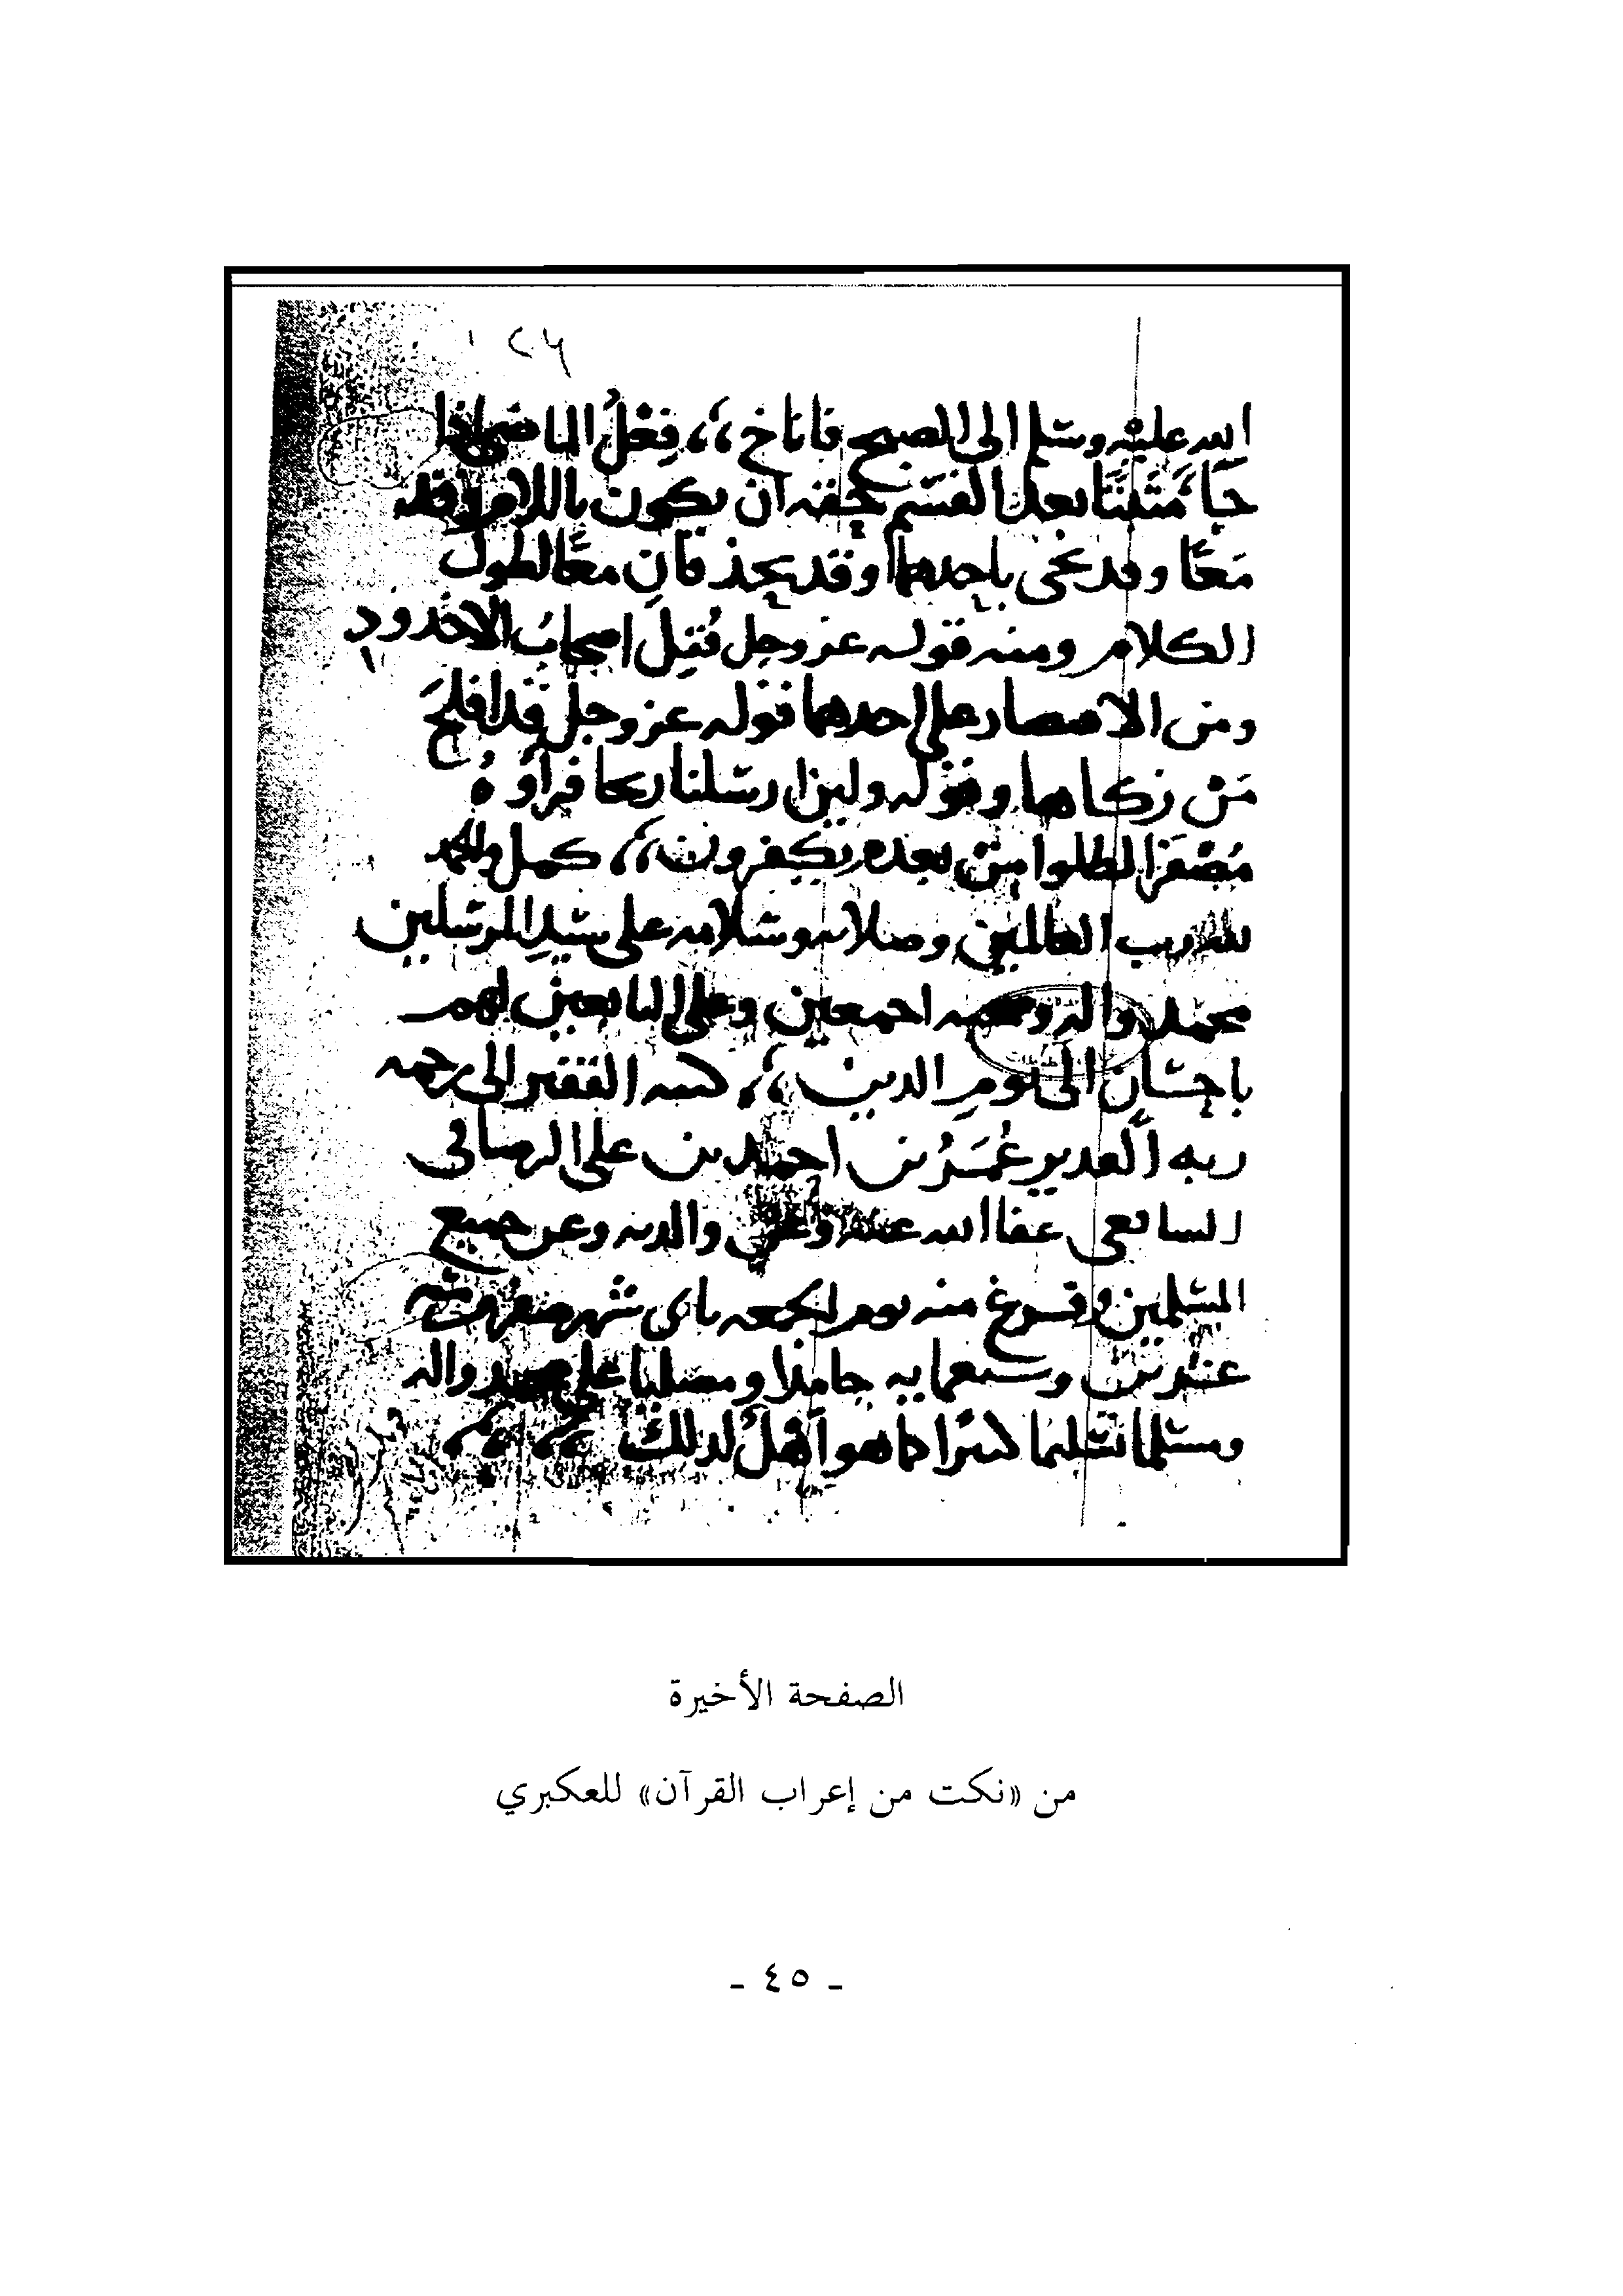 الله عليه وسلم إلى الصبح فأناخ،، فِعْلُ الماضي إذا
جَاءَ مثبتا بعد القسم حقه أن يكون باللام وقد
مَعًا وقد يجي بأحدهما وقد يحذفان معًا لطول
الكلام ومنه قوله عز وجل قُتِلَ أصحابُ الأخدود
ومن الاقتصار على أحدهما قوله عز وجل قد أفلحَ
مَنْ زكاها وقوله ولئن أرسلنا ريحا فرأَوْهُ
مُصْفَرًا لظلوا مِنْ بعده يكفرون،، كمل والحمد
لله رب العالمين وصلاته وسلامه على سيدِ المرسلين
محمد وآله وصحبه أجمعين وعلى التابعين لهم
بإحسان إلى يومِ الدين،، كتبه الفقير إلى رحمة
ربه القدير عُمَرُ بن أحمد بن علي
الشافعي عفا الله عنه وعن والديه وعن جميع
المسلمين وفرغ منه يوم الجمعة ثاني شهر صفر سنة
عشرين وسبعمايه حامدا ومصليا على محمد وآله
ومسلما تسليما كثيرا كما هو أهلٌ لذلك
الصفحة الأخيرة
من «نكت من إعراب القرآن» للعكبري
- ٤٥ -